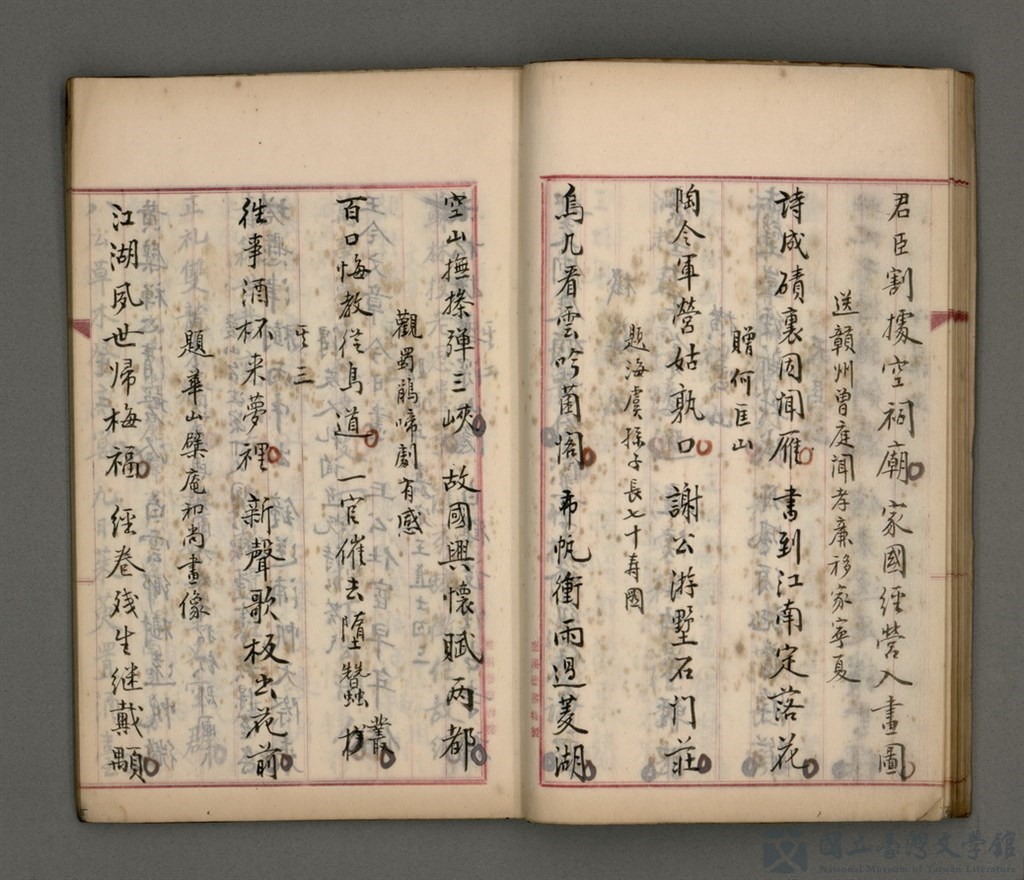 君臣割據空祠廟 家國經營入畫圖
送贛州曾庭聞孝廉移家寧夏
詩成磧裏因聞雁 書到江南定落花
贈何匡山
陶令軍營姑孰口 謝公游墅石门莊
題海虞孫子長七十壽圖
烏几看雲吟菌閣 布帆衝雨過菱湖
空山撫操弹三峽 故國興懷賦两都
觀蜀鵑啼劇有感
百口悔教從鳥道 一官催去墮蠶叢
其三
往事酒杯来夢裡 新聲歌板出花前
題華山檗庵和尚畫像
江湖夙世帰梅福 經卷残生继戴顒
國立臺灣文學館
National Museum of Taiwan Literature